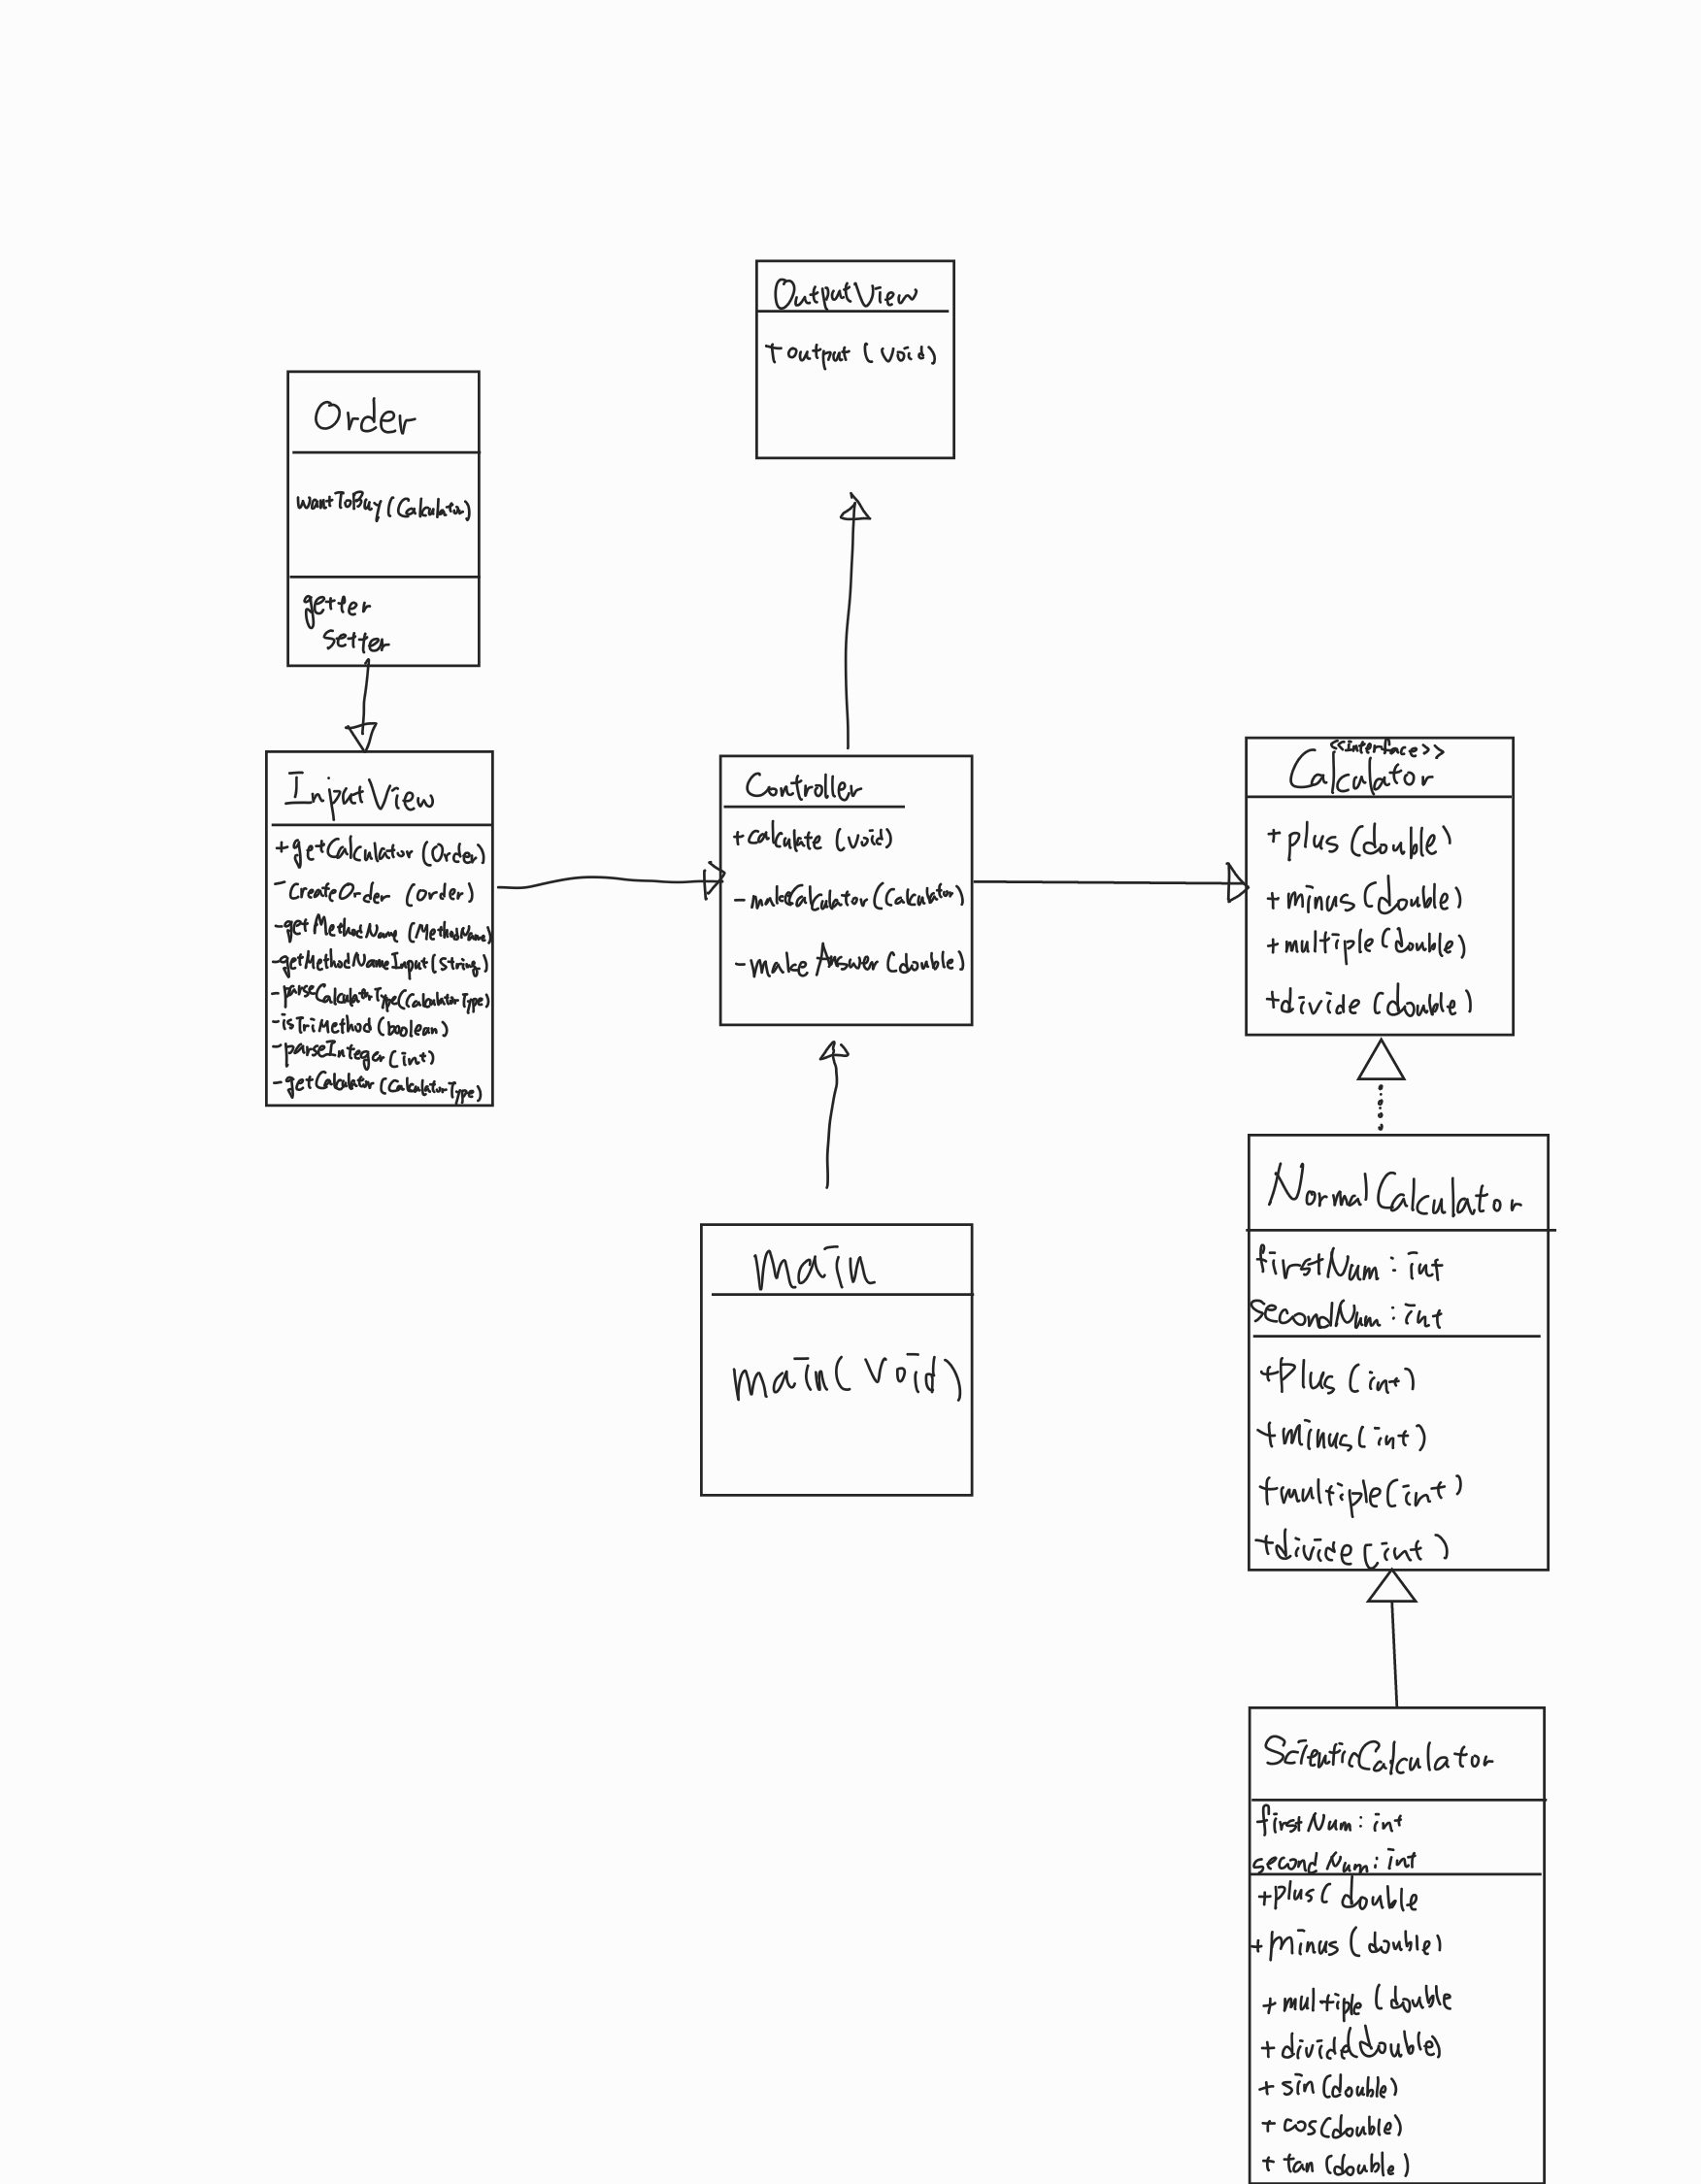 OutputView
+ output (void)
Order
wantToBuy (Calculator)
getter
setter
InputView
+ getCalculator (Order)
- CreateOrder (Order)
- getMethodName (MethodName)
- getMethodNameInput (String)
- parseCalculatorType (CalculatorType)
- isTriMethod (boolean)
- parseInteger (int)
- getCalculator (CalculatorType)
Controller
+ calculate (void)
- makeCalculator (Calculator)
- make Answer (double)
<<Interface>>
Calculator
+ plus (double)
+ minus (double)
+ multiple (double)
+ divide (double)
Main
main( void)
NormalCalculator
firstNum : int
secondNum : int
+ Plus (int)
+ minus (int)
+ multiple (int)
+ divide (int)
ScienticCalculator
firstNum : int
secondNum : int
+ plus ( double
+ minus (double)
+ multiple (double
+ divide(double)
+ sin (double)
+ cos(double)
+ tan (double)